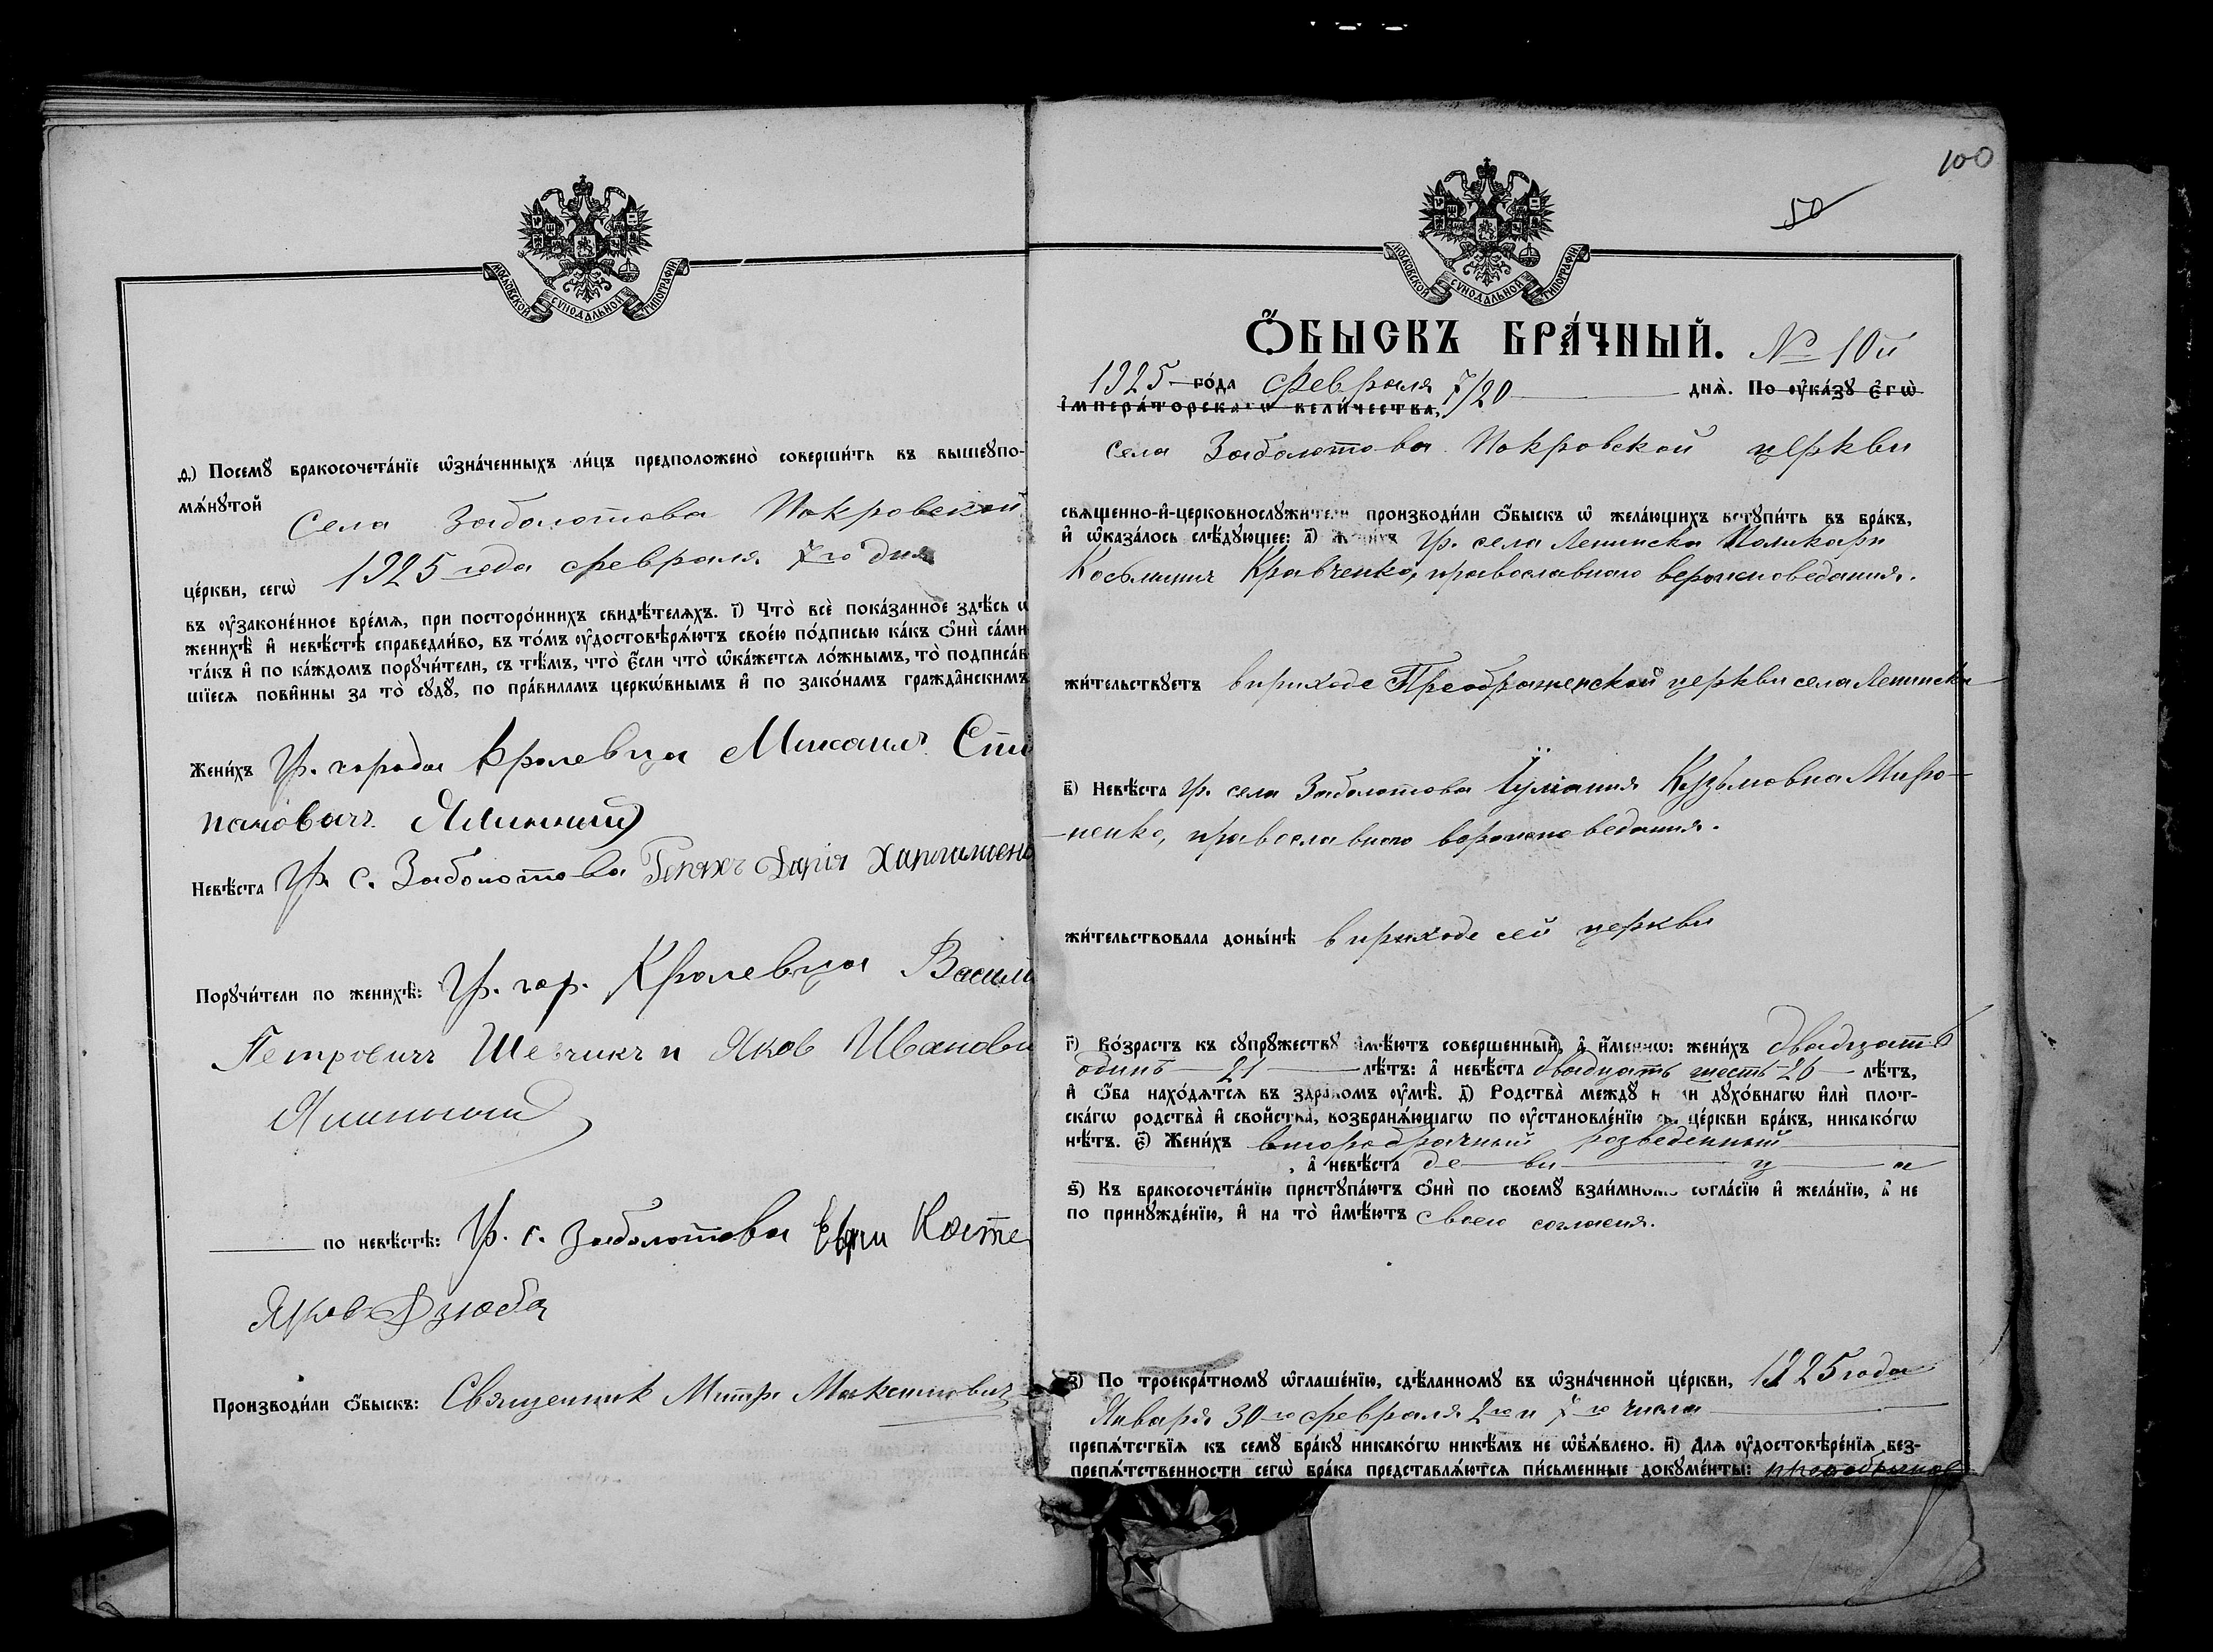 МОСКОВСКОЙ СѴНОДАЛЬНОЙ ТИПОГРАФІИ
д҃) Посемꙋ̀ бракосочета́нїе ѡ҆зна́ченныхъ ли́цъ предположено̀ соверши́ть въ вышеꙋпо-
мѧ́нꙋтой Села Заболотова Покровской
це́ркви, сегѡ̀ 1925 года февраля 7го дня
въ ᲂу҆законе́нное вре́мѧ, при посторо́ннихъ свидѣ́телѧхъ. і҃) Что̀ всѐ пока́занное здѣ́сь ѡ
женихѣ̀ и҆ невѣ́стѣ справедли́во, въ то́мъ ᲂу҆достовѣрѧ́ютъ свое́ю по́дписью ка́къ ѻ҆нѝ са́ми
та́къ и҆ по ка́ждомъ порꙋчи́тели, съ тѣ́мъ, что̀ є҆́сли что̀ ѡ҆ка́жетсѧ ло́жнымъ, то̀ подписа́в
шїесѧ пови́нны за то̀ сꙋдꙋ̀, по пра́виламъ церко́внымъ и҆ по зако́намъ гражда́нскимъ
Жени́хъ Гр. города Кролевца Михаил Сти
панович Ялинный
Невѣ́ста Гр. с. Заболотова Дарія Харламень
Порꙋчи́тели по женихѣ̀: Гр. гор. Кролевца Васили
Петрович Шевчик и Яков Иванови
Ялинный
по невѣ́стѣ: Гр. с. Заболотова Косте
Яков Дзюба
Производи́ли ѻ҆́быскъ: Священник Митр. Максимович
100
50
МОСКОВСКОЙ СѴНОДАЛЬНОЙ ТИПОГРАФІИ
Ѻ҆́БЫСКЪ БРА́ЧНЫЙ. № 10й
1925 го́да Февраля 7/20 днѧ̀. По ᲂу҆ка́зꙋ є҆гѡ̀
і҆мпера́торскагѡ вели́чества,
села Заболотова Покровской церкви
свѧщенно-и҆-церковнослꙋжители производи́ли ѻ҆́быскъ ѡ҆ жела́ющихъ встꙋпи́ть въ бра́къ,
и҆ ѡ҆каза́лось слѣ́дꙋющее: а҃) жени́хъ гр. села Ленинска Поликарп
Косьминич Кравченко, православного вероисповедания.
жи́тельствꙋетъ в приходе Преображенской церкви села Ленинска
в҃) Невѣ́ста гр. села Заболотова Іулиания Кузьмовна Миро-
-ненко, православного вероисповедания.
жи́тельствовала доны́нѣ в приходе сей церкви
г҃) Во́зрастъ къ сꙋпрꙋ́жествꙋ и҆мѣ́ютъ соверше́нный, а҆ и҆́меннѡ: жени́хъ двадцать
один 21 лѣ́тъ: а҆ невѣ́ста двадцать шесть 26 лѣ́тъ,
и҆ ѻ҆́ба нахо́дѧтсѧ въ здра́вомъ ᲂу҆мѣ̀. д҃) Родства̀ междꙋ̀ ними дꙋхо́внагѡ и҆лѝ плот-
ска́гѡ родства̀ и҆ свойства̀, возбранѧ́ющагѡ по ᲂу҆становле́нїю св. це́ркви бра́къ, никако́гѡ
нѣ́тъ. є҃) Жени́хъ второбрачный розведенный
, а҆ невѣ́ста де ви ц а
ѕ҃) Къ бракосочета́нїю пристꙋпа́ютъ ѻ҆нѝ по своемꙋ̀ взаи́мномꙋ согла́сїю и҆ жела́нїю, а҆ не
по принꙋжде́нїю, и҆ на то̀ и҆мѣ́ютъ своего согласия.
з҃) По троекра́тномꙋ ѡ҆глаше́нїю, сдѣ́ланномꙋ въ ѡ҆зна́ченной це́ркви, 1925 года
Января 30го февраля 2го и 7го числа
препѧ́тствїѧ къ семꙋ̀ бра́кꙋ никако́гѡ никѣ́мъ не ѡ҆б̾ѧ́влено. и҃) Длѧ ᲂу҆достовѣре́нїѧ без-
препѧ́тственности сегѡ̀ бра́ка представлѧ́ютсѧ пи́сьменные докꙋме́нты: